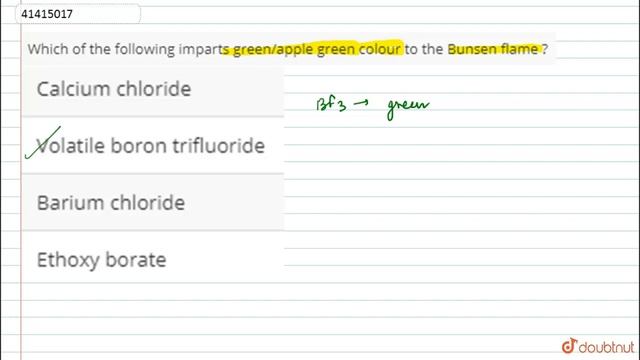 41415017
Which of the following imparts green/apple green colour to the Bunsen flame ?
Calcium chloride
Volatile boron trifluoride
Barium chloride
Ethoxy borate
Bf3 → green
doubtnut